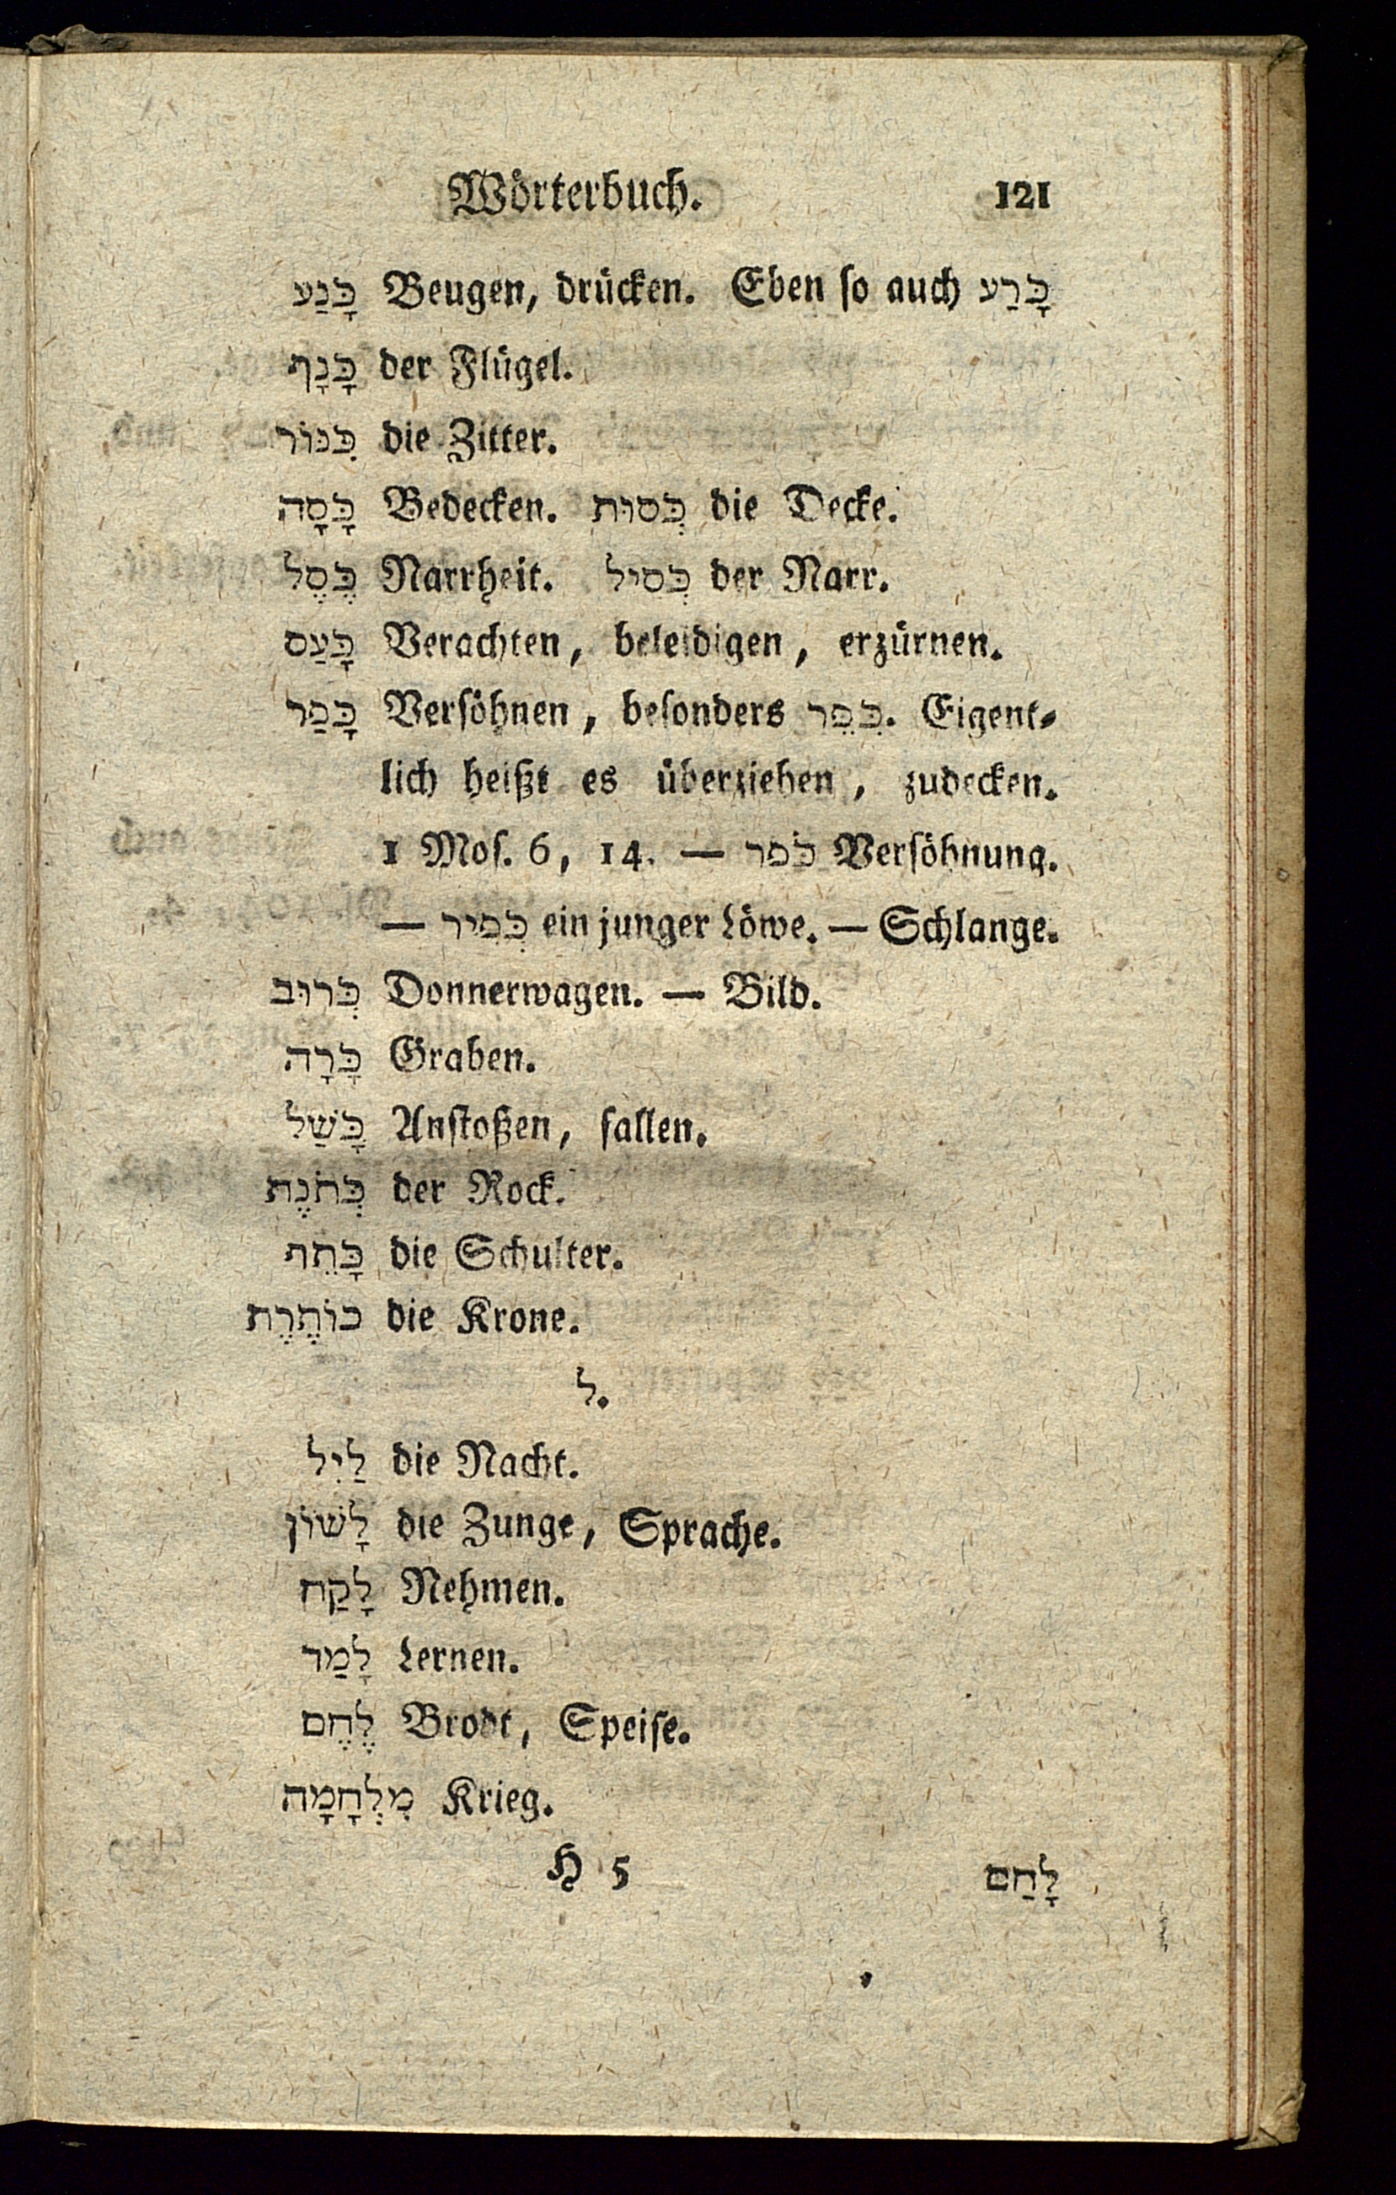 Wörterbuch. 121
כָּנַע Beugen, drücken. Eben so auch כָּרַע
כָּנָף der Flügel.
כִּנּוֹר die Zitter.
כָּסָה Bedecken. כְּסוּת die Decke.
כֶּסֶל Narrheit. כְּסִיל der Narr.
כָּעַס Verachten, beleidigen, erzürnen.
כָּפַר Versöhnen, besonders כִּפֵּר. Eigent-
lich heißt es überziehen, zudecken.
1 Mos. 6, 14. — כֹּפֶר Versöhnung.
— כְּפִיר ein junger Löwe. — Schlange.
כְּרוּב Donnerwagen. — Bild.
כָּרָה Graben.
כָּשַׁל Anstoßen, fallen.
כְּתֹנֶת der Rock.
כָּתֵף die Schulter.
כּוֹתֶרֶת die Krone.
ל.
לַיִל die Nacht.
לָשׁוֹן die Zunge, Sprache.
לָקַח Nehmen.
לָמַד Lernen.
לֶחֶם Brodt, Speise.
מִלְחָמָה Krieg.
H 5 לָחַם